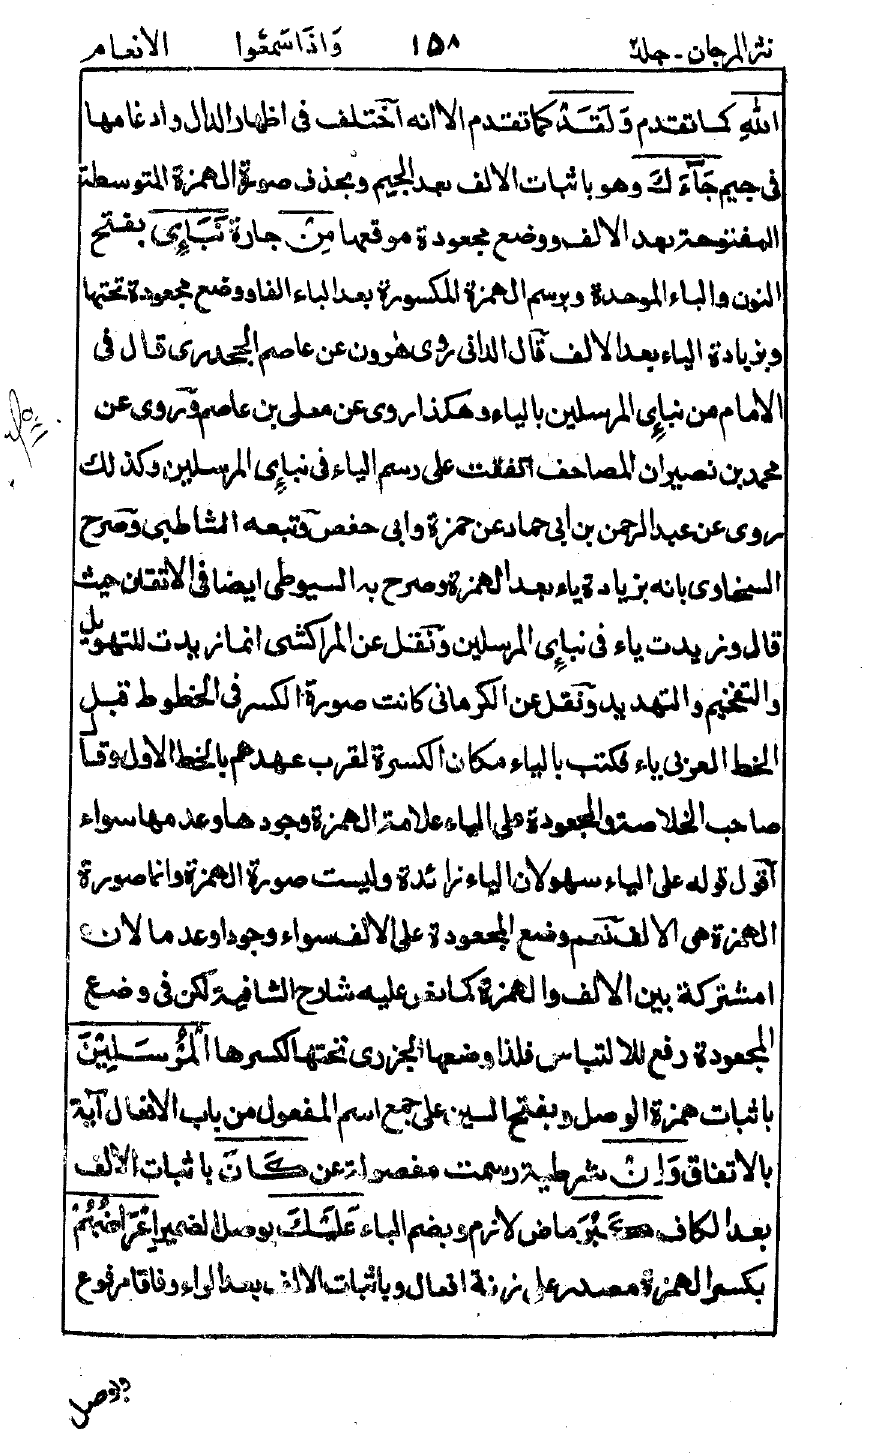 نثر المرجان - جلد ٢ ١٥٨ وَاذَا سَمِعُوا الانعام
اللهِ كما تقدم وَلَقَدْ كما تقدم الا انه اختلف فى اظهار الدال وادغامها
فى جيم جَآءَكَ وهو باثبات الالف بعد الجيم وبحذف صورة الهمزة المتوسطة
المفتوحة بعد الالف ووضع مجعودة موقعها مِنْ جارة نَّبَإِى بفتح
النون والباء الموحدة وبرسم الهمزة المكسورة بعد الباء الفا ووضع مجعودة تحتها
وبزيادة الياء بعد الالف قال الدانى روى هٰرون عن عاصم الجحدرى قال فى
الامام من نبإى المرسلين بالياء وهكذا روى عن معلى بن عاصم وروى عن
محمد بن نصير ان المصاحف اتفقت على رسم الياء فى نبإى المرسلين وكذلك
روى عن عبد الرحمن بن ابى حماد عن حمزة وابى حفص وتبعه الشاطبى وصرح
السخاوى بانه بزيادة ياء بعد الهمزة وصرح به السيوطى ايضا فى الاتقان حيث
قال وزيدت ياء فى نبإى المرسلين ونقل عن المراكشى انما زيدت للتهويل
والتفخيم والتهديد ونقل عن الكرمانى كانت صورة الكسر فى الخطوط قبل
الخط العربى ياء فكتب بالياء مكان الكسرة لقرب عهدهم بالخط الاول وقال
صاحب الخلاصة والمجعودة على الياء علامة الهمزة وجودها وعدمها سواء
اقول قوله على الياء سهو لان الياء زائدة وليست صورة الهمزة وانما صورة
الهمزة هى الالف نعم وضع المجعودة على الالف سواء وجودا وعدما لان
ا مشتركة بين الالف والهمزة كما نص عليه شارح الشافية لكن فى وضع
المجعودة رفع للالتباس فلذا وضعها الجزرى تحتها لكسرها الْمُرْسَلِيْنَ
باثبات همزة الوصل وبفتح السين على جمع اسم المفعول من باب الافعال آية
بالاتفاق وَاِنْ شرطية رسمت مفصولة عن كَانَ باثبات الالف
بعد الكاف كَبُرَ ماض لازم وبضم الباء عَلَيْكَ بوصل الضمير اِعْرَاضُهُمْ
بكسر الهمزة مصدر على زنة افعال وباثبات الالف بعد الراء وفاقا مرفوع
بوصل